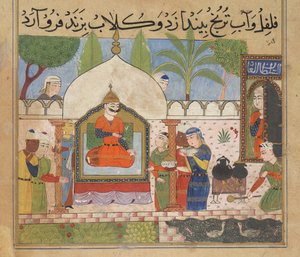 فلفل و آب ترنج بیندازد و کلاب بزند فرو آرد